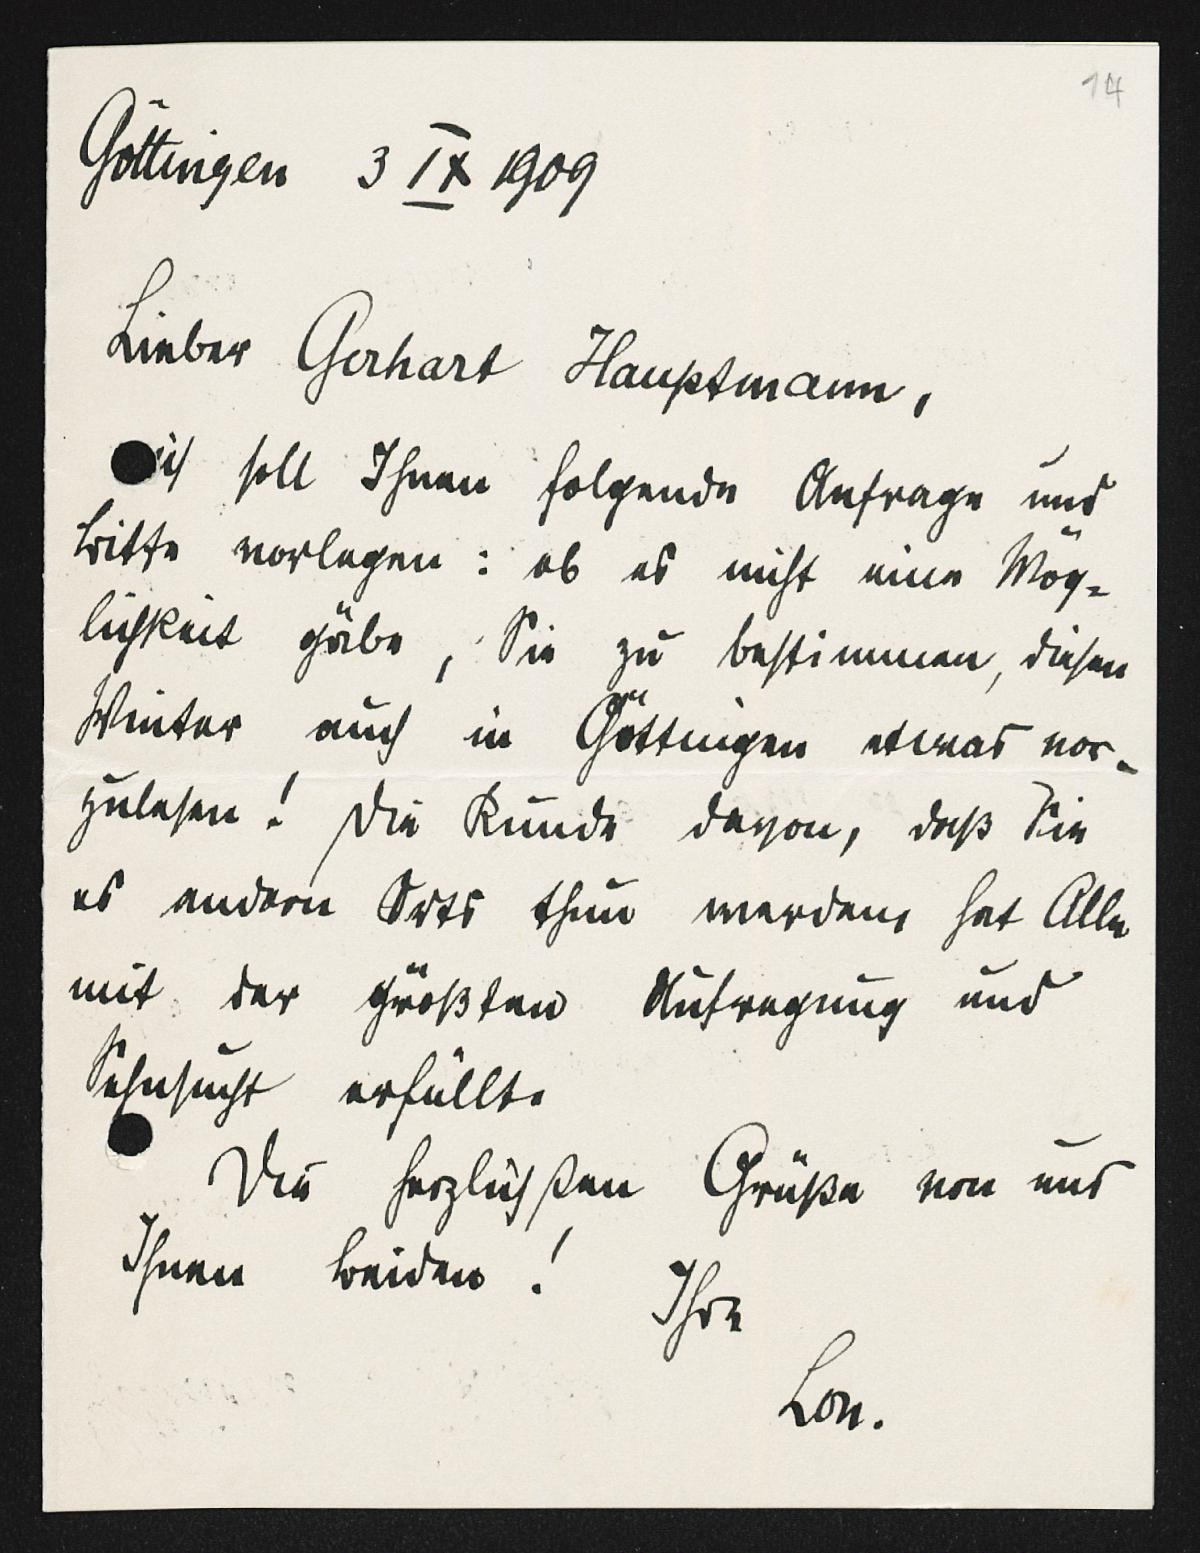 14
Göttingen 3 IX 1909
Lieber Gerhart Hauptmann,
ich soll Ihnen folgende Anfrage und
bitte vorlegen: ob es nicht eine Mög=
lichkeit gäbe, Sie zu bestimmen, diesen
Winter auch in Göttingen etwas vor-
zulesen! Die Kunde davon, daß Sie
es andern Orts thun werden, hat Alle
mit der größten Aufregung und
Sehnsucht erfüllt.
Die herzlichsten Grüße von uns
Ihnen beiden!
Ihre
Lou.